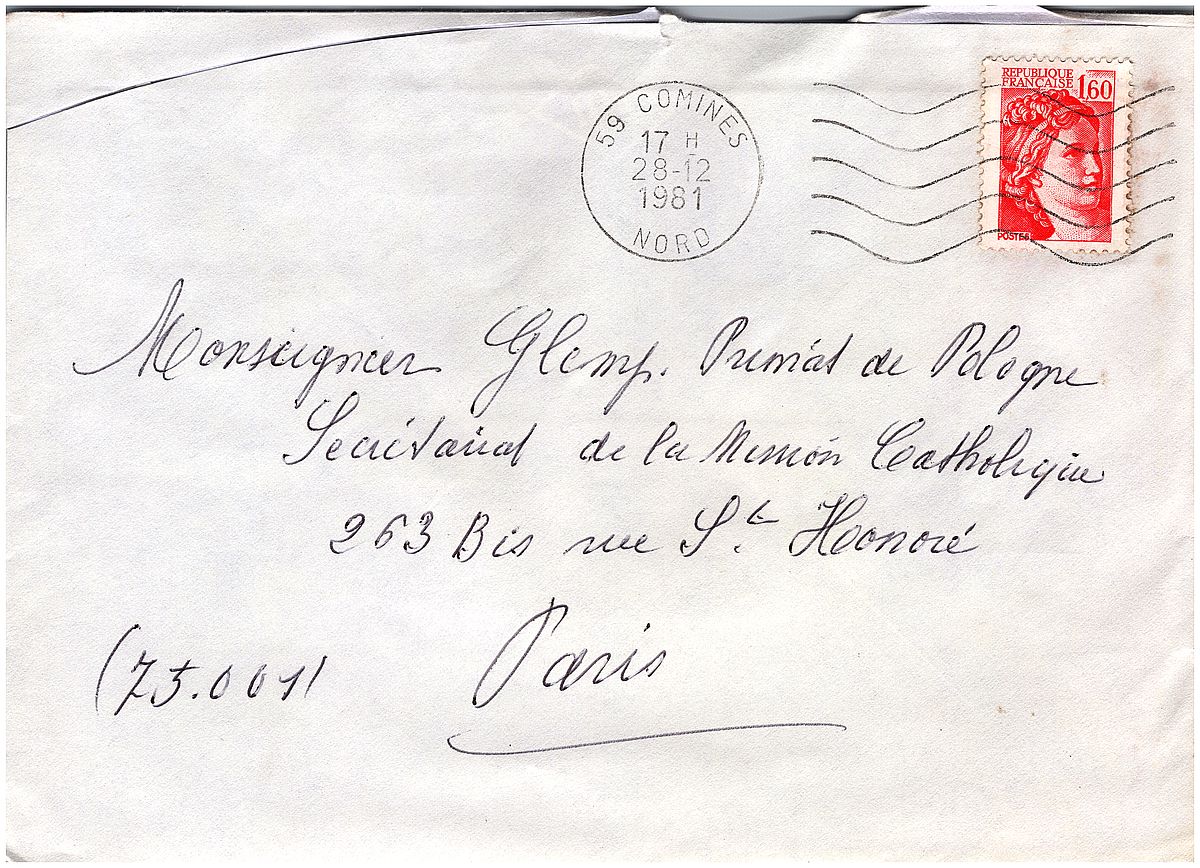 59 COMINES
17 H
28-12
1981
NORD
REPUBLIQUE
FRANÇAISE
1,60
POSTES
Monseigneur Glemp. Primat de Pologne
Secrétariat de la Mission Catholique
263 Bis rue St. Honoré
(75.001)
Paris